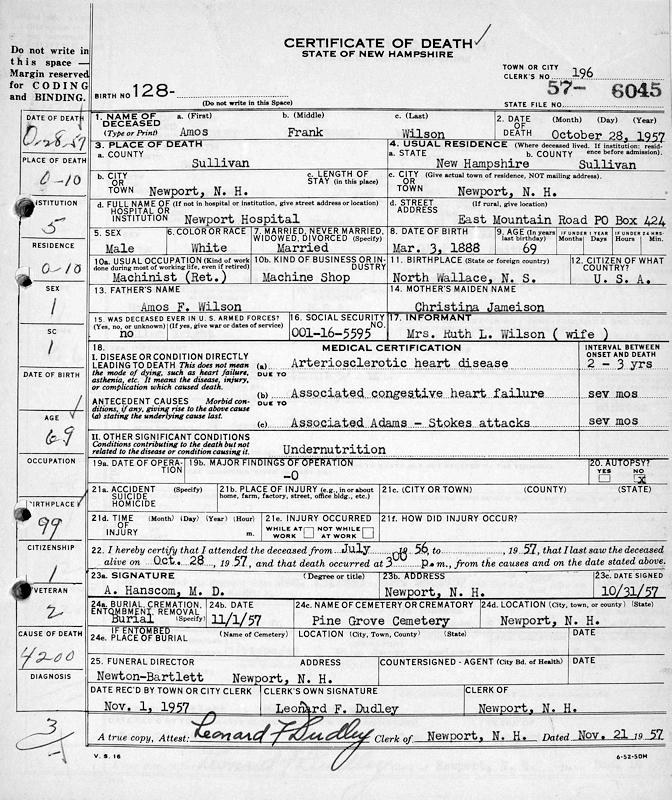 CERTIFICATE OF DEATH
STATE OF NEW HAMPSHIRE
Do not write in
this space —
Margin reserved
for CODING
and BINDING.
BIRTH NO. 128-
(Do not write in this Space)
TOWN OR CITY
CLERK'S NO. 196
57- 6045
STATE FILE NO.
DATE OF DEATH
0-28-57
PLACE OF DEATH
0-10
INSTITUTION
5
RESIDENCE
0-10
SEX
1
SC
1
DATE OF BIRTH
AGE
69
OCCUPATION
BIRTHPLACE
99
CITIZENSHIP
1
VETERAN
2
CAUSE OF DEATH
4200
DIAGNOSIS
3
1. NAME OF DECEASED (Type or Print) a. (First) b. (Middle) c. (Last)
Amos Frank Wilson
2. DATE OF DEATH (Month) (Day) (Year)
October 28, 1957
3. PLACE OF DEATH
a. COUNTY
Sullivan
4. USUAL RESIDENCE (Where deceased lived. If institution: residence before admission).
a. STATE b. COUNTY
New Hampshire Sullivan
b. CITY OR TOWN Newport, N. H.
c. LENGTH OF STAY (in this place)
c. CITY OR TOWN (Give actual town of residence, NOT mailing address).
Newport, N. H.
d. FULL NAME OF HOSPITAL OR INSTITUTION (If not in hospital or institution, give street address or location)
Newport Hospital
d. STREET ADDRESS (If rural, give location)
East Mountain Road PO Box 424
5. SEX
Male
6. COLOR OR RACE
White
7. MARRIED, NEVER MARRIED, WIDOWED, DIVORCED (Specify)
Married
8. DATE OF BIRTH
Mar. 3, 1888
9. AGE (In years last birthday)
69
IF UNDER 1 YEAR
Months Days
IF UNDER 24 HRS.
Hours Min.
10a. USUAL OCCUPATION (Kind of work done during most of working life, even if retired)
Machinist (Ret.)
10b. KIND OF BUSINESS OR INDUSTRY
Machine Shop
11. BIRTHPLACE (State or foreign country)
North Wallace, N. S.
12. CITIZEN OF WHAT COUNTRY?
U. S. A.
13. FATHER'S NAME
Amos F. Wilson
14. MOTHER'S MAIDEN NAME
Christina Jameison
15. WAS DECEASED EVER IN U. S. ARMED FORCES?
(Yes, no, or unknown) (If yes, give war or dates of service)
no
16. SOCIAL SECURITY NO.
001-16-5595
17. INFORMANT
Mrs. Ruth L. Wilson ( wife )
18. MEDICAL CERTIFICATION
INTERVAL BETWEEN ONSET AND DEATH
I. DISEASE OR CONDITION DIRECTLY LEADING TO DEATH This does not mean the mode of dying, such as heart failure, asthenia, etc. It means the disease, injury, or complication which caused death.
(a) Arteriosclerotic heart disease 2 - 3 yrs
DUE TO
ANTECEDENT CAUSES Morbid conditions, if any, giving rise to the above cause (a) stating the underlying cause last.
(b) Associated congestive heart failure sev mos
DUE TO
(c) Associated Adams - Stokes attacks sev mos
II. OTHER SIGNIFICANT CONDITIONS
Conditions contributing to the death but not related to the disease or condition causing it.
Undernutrition
19a. DATE OF OPERATION
19b. MAJOR FINDINGS OF OPERATION
-0
20. AUTOPSY?
YES NO X
21a. ACCIDENT SUICIDE HOMICIDE (Specify)
21b. PLACE OF INJURY (e.g., in or about home, farm, factory, street, office bldg., etc.)
21c. (CITY OR TOWN) (COUNTY) (STATE)
21d. TIME OF INJURY (Month) (Day) (Year) (Hour) m.
21e. INJURY OCCURRED
WHILE AT WORK NOT WHILE AT WORK
21f. HOW DID INJURY OCCUR?
22. I hereby certify that I attended the deceased from July 1956, to 1957, that I last saw the deceased
alive on Oct. 28, 1957, and that death occurred at 3 00 p. m., from the causes and on the date stated above.
23a. SIGNATURE (Degree or title)
A. Hanscom, M. D.
23b. ADDRESS
Newport, N. H.
23c. DATE SIGNED
10/31/57
24a. BURIAL, CREMATION, ENTOMBMENT, REMOVAL (Specify)
Burial
24b. DATE
11/1/57
24c. NAME OF CEMETERY OR CREMATORY
Pine Grove Cemetery
24d. LOCATION (City, town, or county) (State)
Newport, N. H.
24e. IF ENTOMBED PLACE OF BURIAL (Name of Cemetery)
LOCATION (City, Town, County) (State)
DATE
25. FUNERAL DIRECTOR ADDRESS
Newton-Bartlett Newport, N. H.
COUNTERSIGNED - AGENT (City Bd. of Health)
DATE
DATE REC'D BY TOWN OR CITY CLERK
Nov. 1, 1957
CLERK'S OWN SIGNATURE
Leonard F. Dudley
CLERK OF
Newport, N. H.
A true copy, Attest: Leonard F Dudley Clerk of Newport, N. H. Dated Nov. 21 1957
V. S. 16
6-52-50M